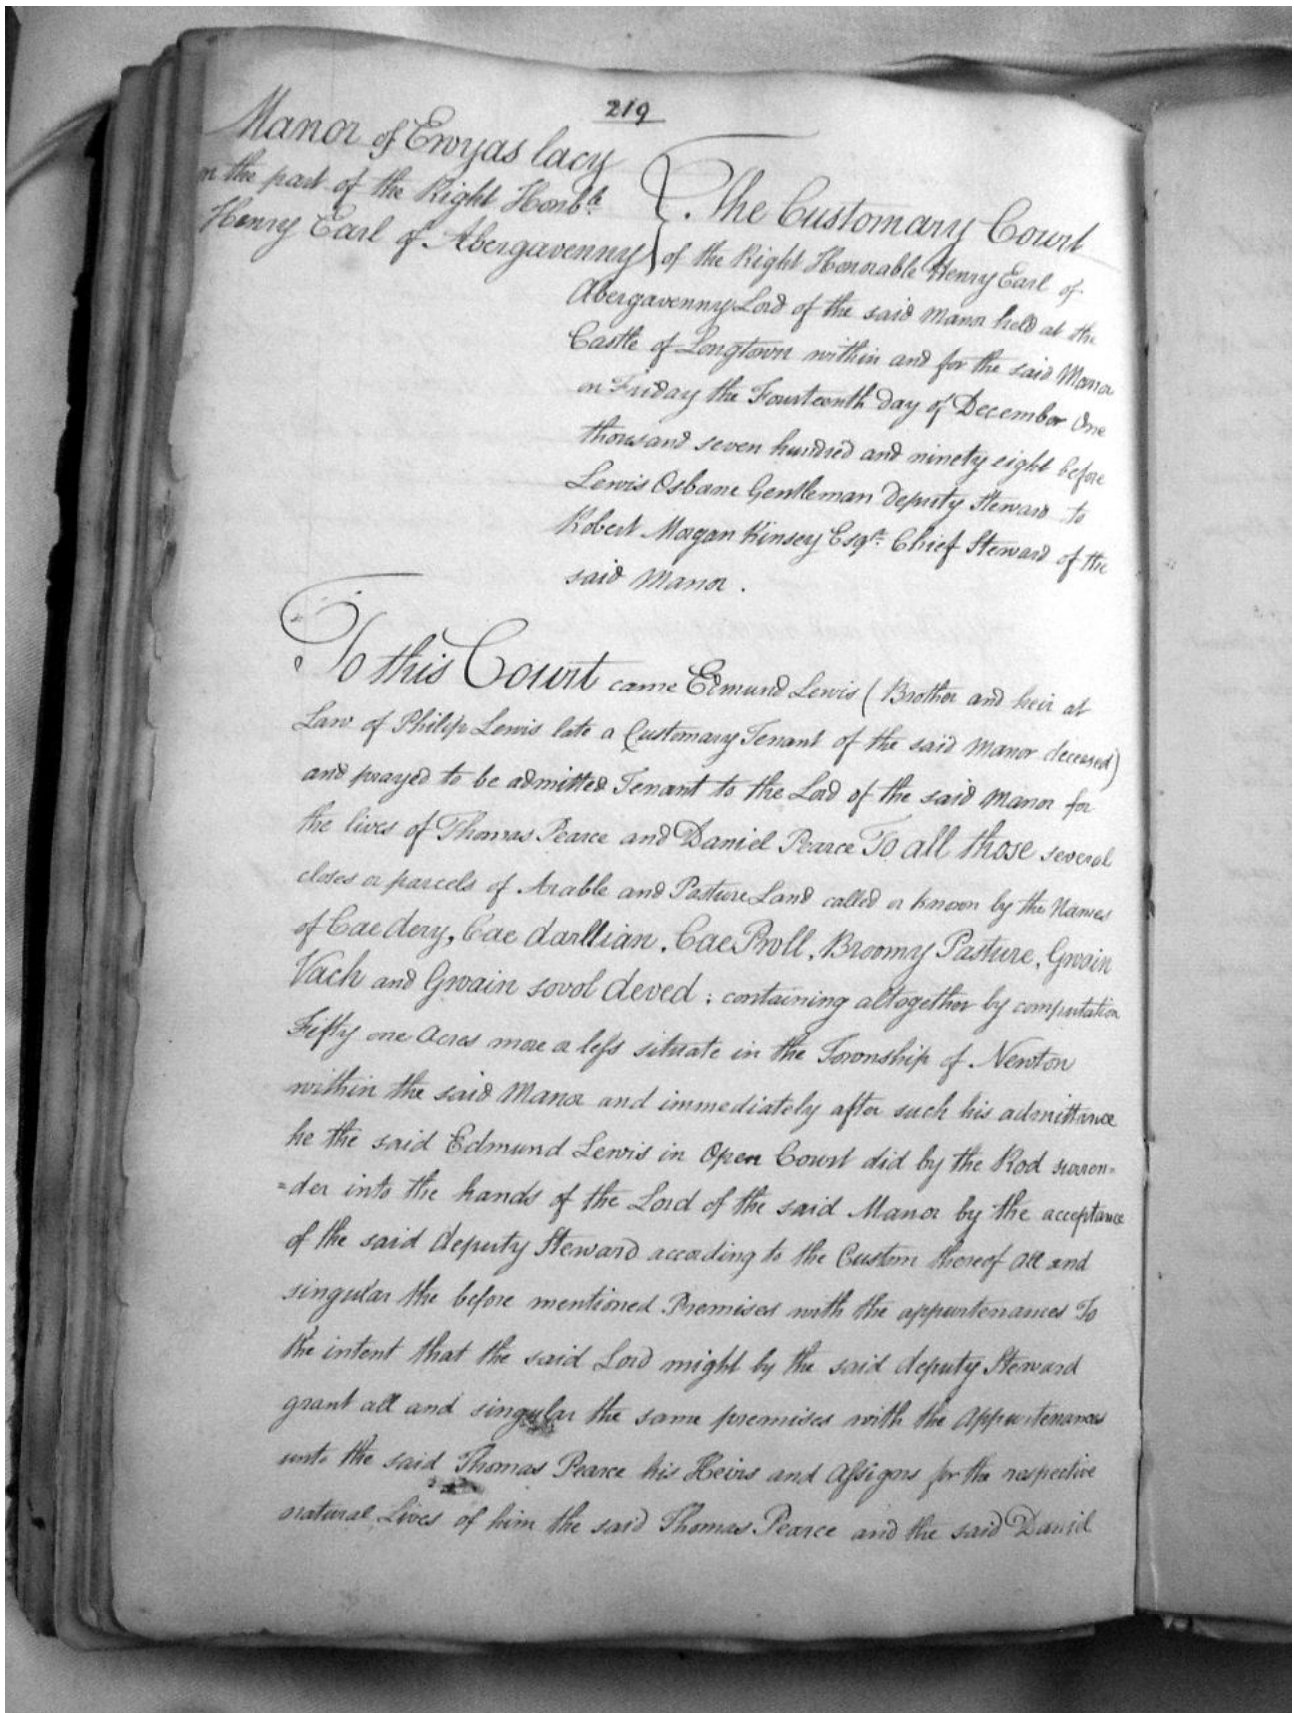 219
Manor of Ewyas lacy
on the part of the Right Honble
Henry Earl of Abergavenny
The Customary Court
of the Right Honorable Henry Earl of
Abergavenny Lord of the said Manor held at the
Castle of Longtown within and for the said Manor
on Friday the Fourteenth day of December One
thousand seven hundred and ninety eight before
Lewis Osbane Gentleman Deputy Steward to
Robert Morgan Kinsey Esqr. Chief Steward of the
said Manor.
To this Court came Edmund Lewis (Brother and heir at
Law of Philip Lewis late a Customary Tenant of the said Manor deceased)
and prayed to be admitted Tenant to the Lord of the said Manor for
the lives of Thomas Pearce and Daniel Pearce To all those several
closes or parcels of Arable and Pasture Land called or known by the Names
of Cae dery, Cae darllian, Cae Proll, Broomy Pasture, Gwain
Vach and Gwain sovol deved; containing altogether by computation
Fifty one Acres more or less situate in the Township of Newton
within the said Manor and immediately after such his admittance
he the said Edmund Lewis in Open Court did by the Rod surren=
=der into the hands of the Lord of the said Manor by the acceptance
of the said deputy Steward according to the Custom thereof all and
singular the before mentioned Premises with the appurtenances To
the intent that the said Lord might by the said deputy Steward
grant all and singular the same premises with the Appurtenances
unto the said Thomas Pearce his Heirs and Assigns for the respective
natural Lives of him the said Thomas Pearce and the said Daniel